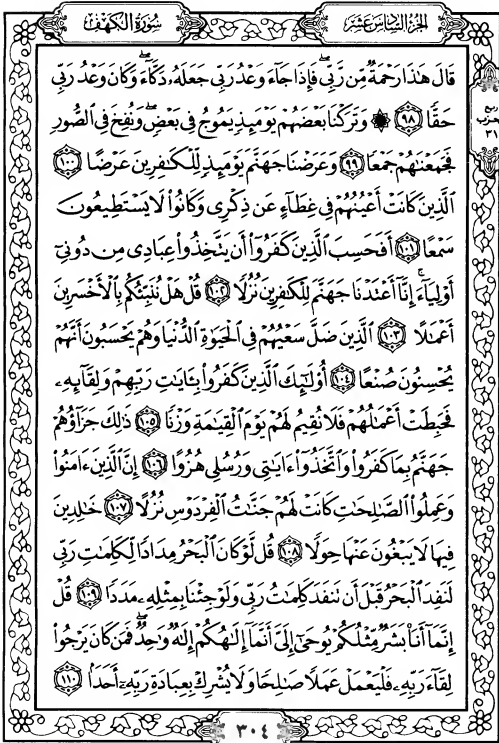 سُورَةُ الكَهْفِ
الجُزْءُ السَّادِسَ عَشَرَ
قَالَ هَٰذَا رَحْمَةٌ مِّن رَّبِّي ۖ فَإِذَا جَاءَ وَعْدُ رَبِّي جَعَلَهُۥ دَكَّاءَ ۖ وَكَانَ وَعْدُ رَبِّي
حَقًّا ٩٨ ۞ وَتَرَكْنَا بَعْضَهُمْ يَوْمَئِذٍ يَمُوجُ فِي بَعْضٍ ۖ وَنُفِخَ فِي ٱلصُّورِ
فَجَمَعْنَٰهُمْ جَمْعًا ٩٩ وَعَرَضْنَا جَهَنَّمَ يَوْمَئِذٍ لِّلْكَٰفِرِينَ عَرْضًا ١٠٠
ٱلَّذِينَ كَانَتْ أَعْيُنُهُمْ فِي غِطَآءٍ عَن ذِكْرِى وَكَانُوا۟ لَا يَسْتَطِيعُونَ
سَمْعًا ١٠١ أَفَحَسِبَ ٱلَّذِينَ كَفَرُوٓا۟ أَن يَتَّخِذُوا۟ عِبَادِى مِن دُونِىٓ
أَوْلِيَآءَ ۚ إِنَّآ أَعْتَدْنَا جَهَنَّمَ لِلْكَٰفِرِينَ نُزُلًا ١٠٢ قُلْ هَلْ نُنَبِّئُكُم بِٱلْأَخْسَرِينَ
أَعْمَٰلًا ١٠٣ ٱلَّذِينَ ضَلَّ سَعْيُهُمْ فِي ٱلْحَيَوٰةِ ٱلدُّنْيَا وَهُمْ يَحْسَبُونَ أَنَّهُمْ
يُحْسِنُونَ صُنْعًا ١٠٤ أُو۟لَٰٓئِكَ ٱلَّذِينَ كَفَرُوا۟ بِـَٔايَٰتِ رَبِّهِمْ وَلِقَآئِهِۦ
فَحَبِطَتْ أَعْمَٰلُهُمْ فَلَا نُقِيمُ لَهُمْ يَوْمَ ٱلْقِيَٰمَةِ وَزْنًا ١٠٥ ذَٰلِكَ جَزَآؤُهُمْ
جَهَنَّمُ بِمَا كَفَرُوا۟ وَٱتَّخَذُوٓا۟ ءَايَٰتِى وَرُسُلِى هُزُوًا ١٠٦ إِنَّ ٱلَّذِينَ ءَامَنُوا۟
وَعَمِلُوا۟ ٱلصَّٰلِحَٰتِ كَانَتْ لَهُمْ جَنَّٰتُ ٱلْفِرْدَوْسِ نُزُلًا ١٠٧ خَٰلِدِينَ
فِيهَا لَا يَبْغُونَ عَنْهَا حِوَلًا ١٠٨ قُل لَّوْ كَانَ ٱلْبَحْرُ مِدَادًا لِّكَلِمَٰتِ رَبِّى
لَنَفِدَ ٱلْبَحْرُ قَبْلَ أَن تَنفَدَ كَلِمَٰتُ رَبِّى وَلَوْ جِئْنَا بِمِثْلِهِۦ مَدَدًا ١٠٩ قُلْ
إِنَّمَآ أَنَا۠ بَشَرٌ مِّثْلُكُمْ يُوحَىٰٓ إِلَىَّ أَنَّمَآ إِلَٰهُكُمْ إِلَٰهٌ وَٰحِدٌ ۖ فَمَن كَانَ يَرْجُوا۟
لِقَآءَ رَبِّهِۦ فَلْيَعْمَلْ عَمَلًا صَٰلِحًا وَلَا يُشْرِكْ بِعِبَادَةِ رَبِّهِۦٓ أَحَدًۢا ١١٠
ربع
الحزب
٣١
٣٠٤